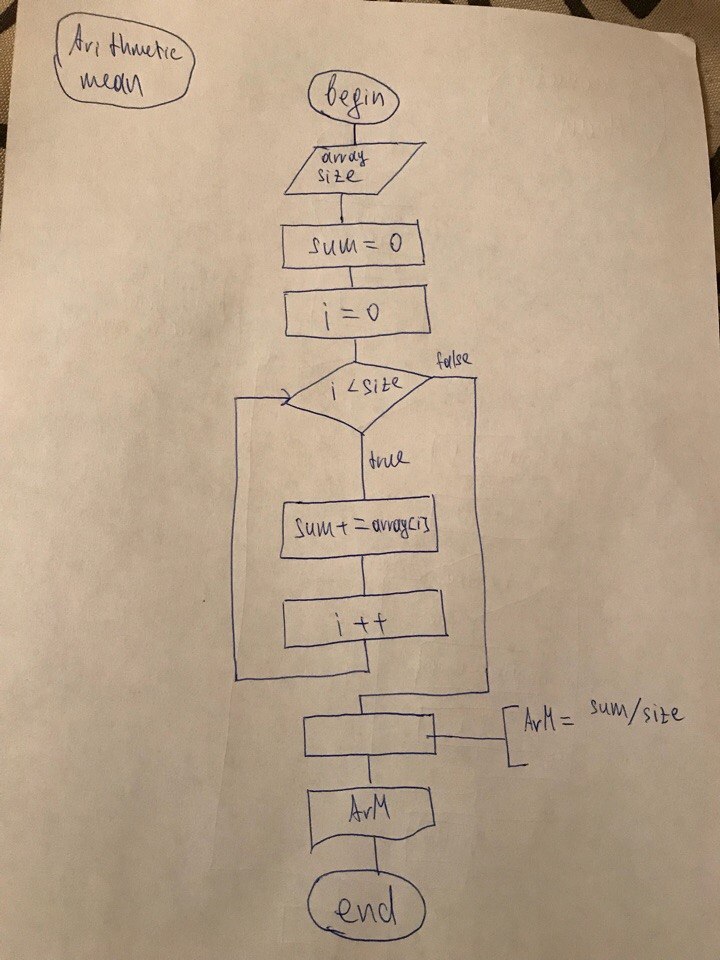 Arithmetic
mean
begin
array
size
sum = 0
i = 0
i < size
false
true
sum+=array[i]
i ++
ArM = sum/size
ArM
end